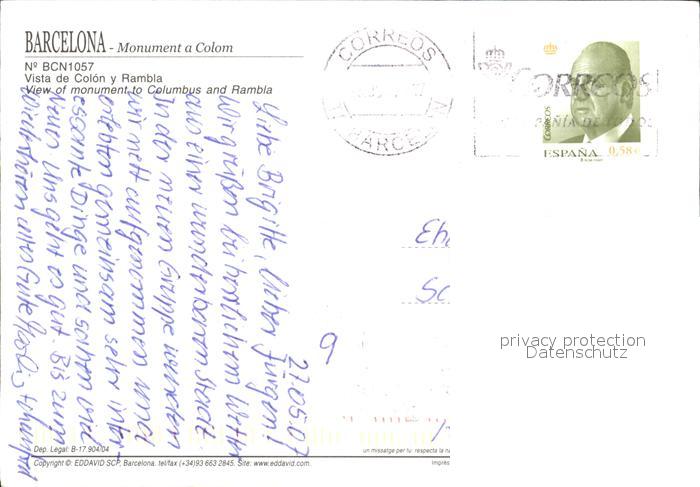 BARCELONA - Monument a Colom
Nº BCN1057
Vista de Colón y Rambla
View of monument to Columbus and Rambla
CORREOS
BARCEL
CORREOS
CORREOS
ESPAÑA 0,58€
27.05.07
Liebe Brigitte, lieber Jürgen!
Wir grüßen bei herrlichem Wetter
aus einer wunderbaren Stadt.
In der neuen Gruppe wurden
wir nett aufgenommen und
erleben gemeinsam sehr inter-
essante Dinge und sehen viel
Neues. Uns geht es gut. Bis zum
Wiederhören alles Gute
9
privacy protection
Datenschutz
Dep. Legal: B-17.904/04
un missatge per tu: respecta la na
Copyright © EDDAVID SCP, Barcelona. tel/fax (+34)93 663 2845. Site: www.eddavid.com.
Imprès